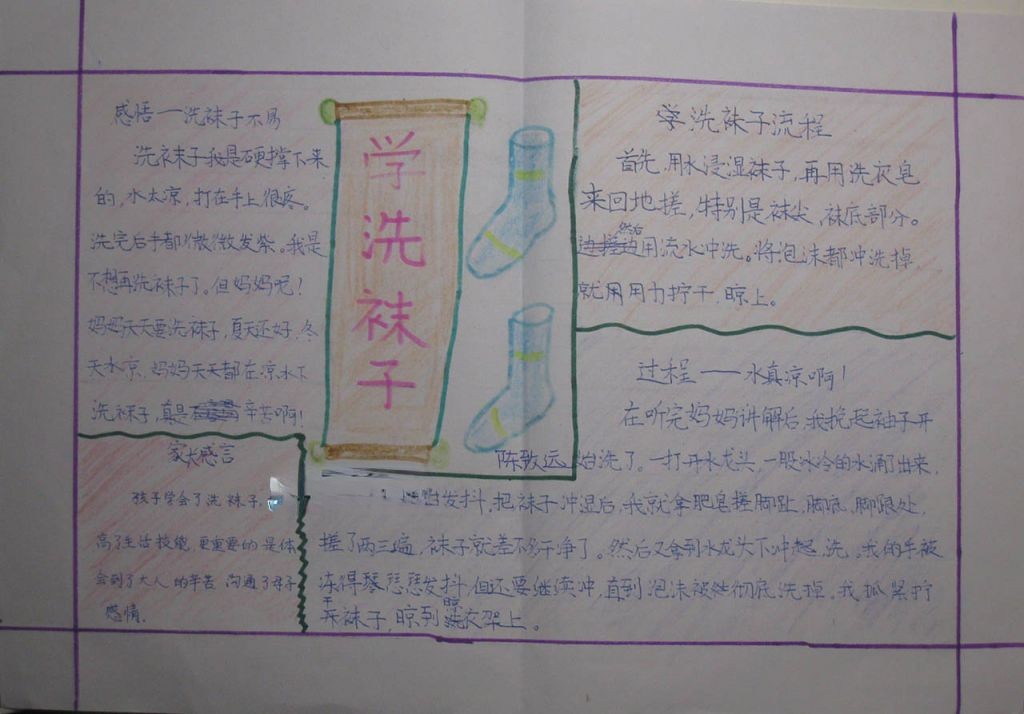 感悟—洗袜子不易
洗袜子我是硬撑下来
的,水太凉,打在手上很疼。
洗完后手都微微发紫。我是
不想再洗袜子了。但妈妈呢!
妈妈天天要洗袜子,夏天还好,冬
天水凉,妈妈天天都在凉水下
洗袜子,真是辛苦啊!
家长感言
孩子学会了洗袜子,
高了生活技能,更重要的是体
会到了大人的辛苦 沟通了母子
感情.
学洗袜子
陈致远
学洗袜子流程
首先,用水浸湿袜子,再用洗衣皂
来回地搓,特别是袜尖,袜底部分。
然后用流水冲洗。将泡沫都冲洗掉
就用用力拧干,晾上。
过程——水真凉啊!
在听完妈妈讲解后,我挽起袖子开
始洗了。一打开水龙头,一股冰冷的水涌了出来,
发抖,把袜子冲湿后,我就拿肥皂搓脚趾,脚底,脚跟处,
搓了两三遍,袜子就差不多干净了。然后又拿到水龙头下冲洗。我的手被
冻得瑟瑟发抖,但还要继续冲,直到泡沫被彻底洗掉。我抓紧拧
干袜子,晾到晾衣架上。